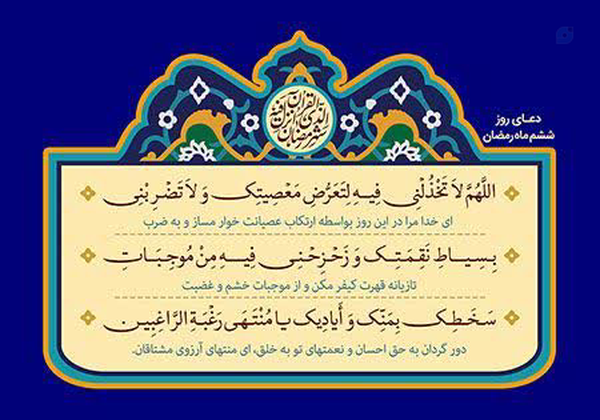 شهر رمضان الذی انزل فیه القرآن
دعـای روز
ششم ماه رمضان
اللَّهُمَّ لاَ تَخْذُلْنِی فِیهِ لِتَعَرُّضِ مَعْصِیَتِکَ وَ لاَ تَضْرِبْنِی
ای خدا مرا در این روز بواسطه ارتکاب عصیانت خوار مساز و به ضرب
بِسِیَاطِ نَقِمَتِکَ وَ زَحْزِحْنِی فِیهِ مِنْ مُوجِبَاتِ
تازیانه قهرت کیفر مکن و از موجبات خشم و غضبت
سَخَطِکَ بِمَنِّکَ وَ أَیَادِیکَ یَا مُنْتَهَى رَغْبَةِ الرَّاغِبِینَ
دور گردان به حق احسان و نعمتهای تو به خلق، ای منتهای آرزوی مشتاقان.